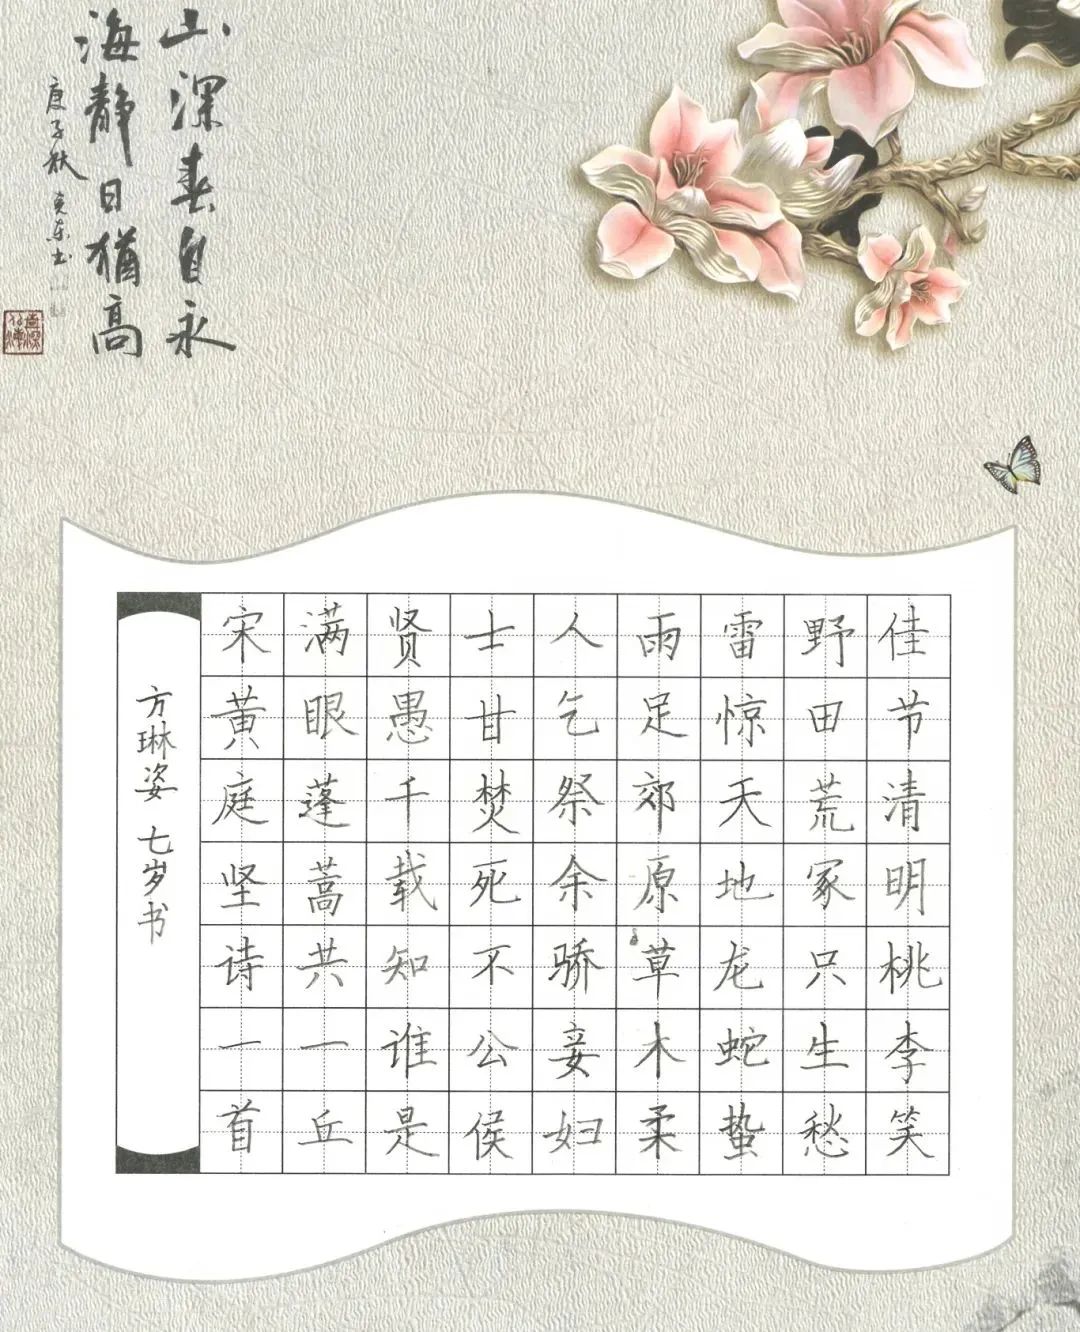 山深春自永
海静日犹高
庚子秋
东书
佳节清明桃李笑
野田荒冢只生愁
雷惊天地龙蛇蛰
雨足郊原草木柔
人乞祭余骄妾妇
士甘焚死不公侯
贤愚千载知谁是
满眼蓬蒿共一丘
宋黄庭坚诗一首
方琳姿 七岁书